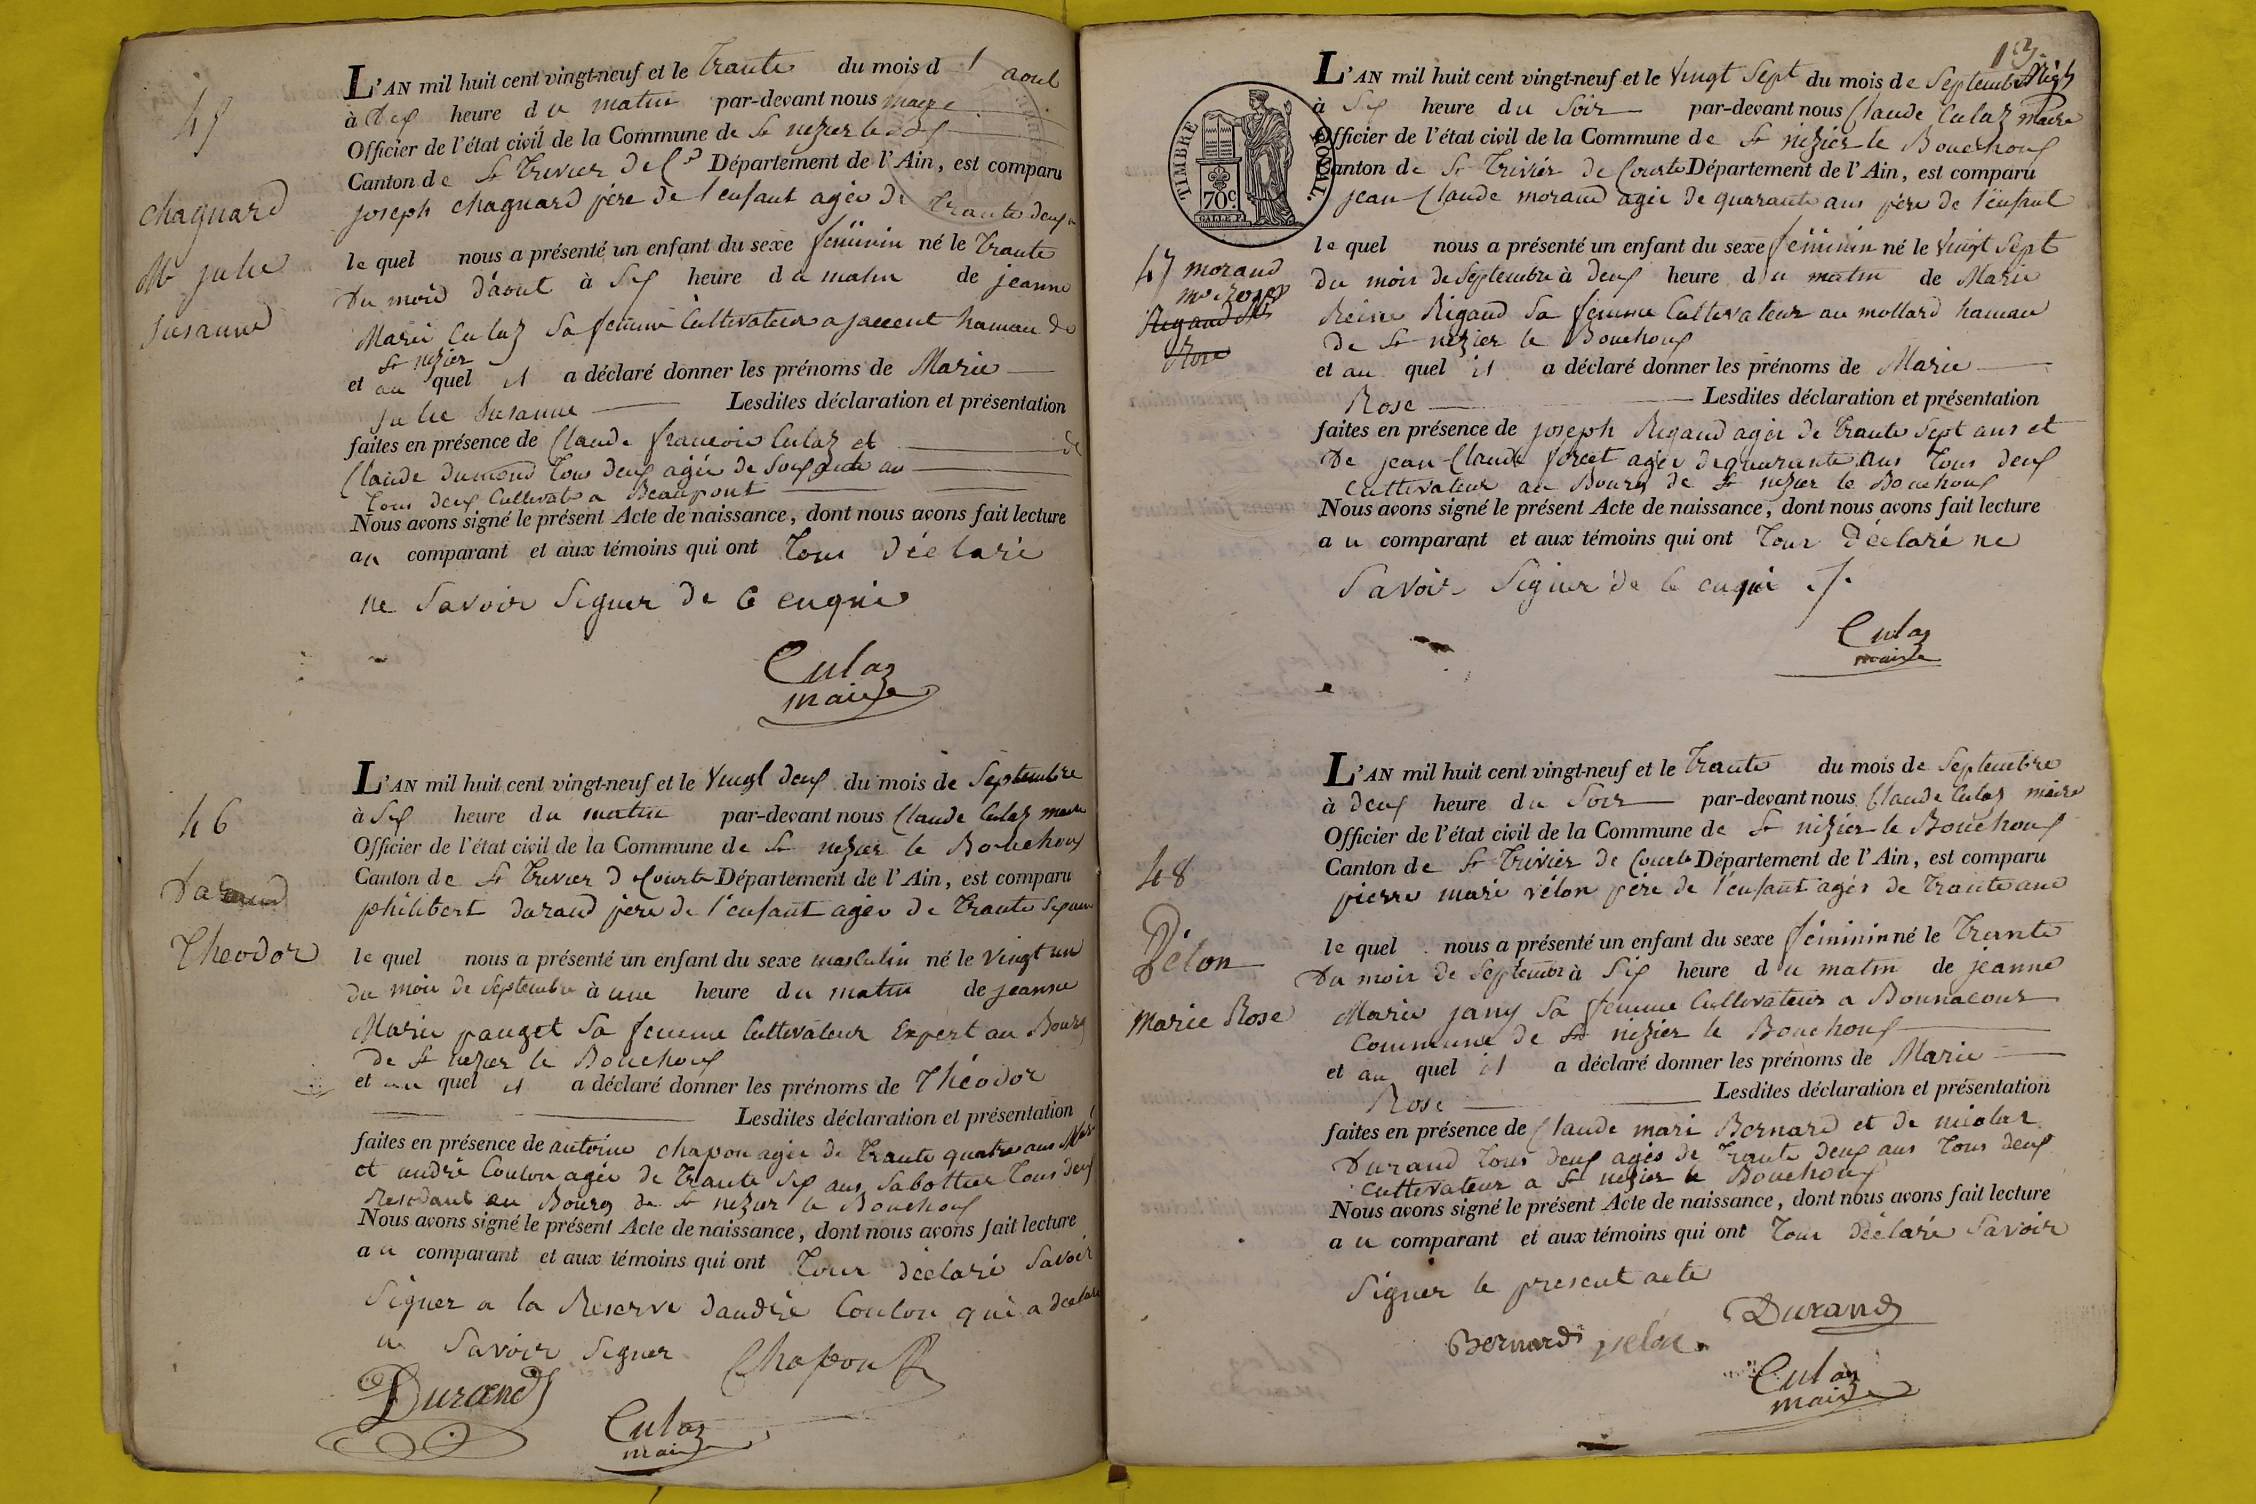 45
chagnard
M julie
Susanne
L'AN mil huit cent vingt-neuf et le Trante du mois d' aout
à dix heure du matin par-devant nous maire
Officier de l'état civil de la Commune de St nizier le
Canton de St Trivier de Département de l'Ain, est comparu
joseph chagnard père de l'enfant agée de trante deux
le quel nous a présenté un enfant du sexe feminin né le Trante
du mois d'aout à Six heure du matin de jeanne
Marie Culaz Sa femme Cultivateur a jaccent hamau de
St nizier
et au quel il a déclaré donner les prénoms de Marie
julie Susanne Lesdites déclaration et présentation
faites en présence de Claude francois Culaz et de
Claude dumond Tous deux agée de Soixante an
Tous deux Cultivat a Beaupont
Nous avons signé le présent Acte de naissance, dont nous avons fait lecture
au comparant et aux témoins qui ont Tous déclaré
ne Savoir Signer de ce enqui
Culaz
maire
46
Theodor
L'AN mil huit cent vingt-neuf et le Vingt deux du mois de Septembre
à Six heure du matin par-devant nous Claude Culaz maire
Officier de l'état civil de la Commune de St nizier le Bouchoux
Canton de St Trivier d Courte Département de l'Ain, est comparu
philibert durand père de l'enfant agée de Trante Sept
le quel nous a présenté un enfant du sexe masculin né le Vingt un
du mois de Septembre à une heure du matin de jeanne
Marie pauget Sa femme Cultivateur Expert au Bourg
de St nizier le Bouchoux
et au quel il a déclaré donner les prénoms de Théodor
Lesdites déclaration et présentation
faites en présence de antoine chapon agée de Trante quatre ans
et andré Coulon agée de Trante Six ans Sabottier Tous deux
Residant au Bourg de St nizier le Bouchoux
Nous avons signé le présent Acte de naissance, dont nous avons fait lecture
au comparant et aux témoins qui ont Tous déclaré Savoir
Signer a la Reserve dandré Coulon qui a declaré
ne Savoir Signer
Chapon
Durand
Culaz
maire
13
TIMBRE ROYAL.
70c.
47 morand
Rigaud
Rose
L'AN mil huit cent vingt-neuf et le Vingt Sept du mois de Septembre
à Six heure du Soir par-devant nous Claude Culaz maire
Officier de l'état civil de la Commune de St nizier le Bouchoux
Canton de St Trivier de Courte Département de l'Ain, est comparu
jean Claude morand agée de quarante ans père de l'enfant
le quel nous a présenté un enfant du sexe féminin né le Vingt Sept
du mois de Septembre à deux heure du matin de Marie
Reine Rigaud Sa femme Cultivateur au mollard hamau
de St nizier le Bouchoux
et au quel il a déclaré donner les prénoms de Marie
Rose Lesdites déclaration et présentation
faites en présence de joseph Rigaud agée de Trante Sept ans et
de jean Claude foret agée de quarante ans Tous deux
Cultivateur au Bourg de St nizier le Bouchoux
Nous avons signé le présent Acte de naissance, dont nous avons fait lecture
au comparant et aux témoins qui ont Tous Déclaré ne
Savoir Signer de ce enqui
Culaz
maire
48
Vélon
Marie Rose
L'AN mil huit cent vingt-neuf et le Trante du mois de Septembre
à deux heure du Soir par-devant nous Claude Culaz maire
Officier de l'état civil de la Commune de St nizier le Bouchoux
Canton de St Trivier de Courte Département de l'Ain, est comparu
pierre marie vélon père de l'enfant agés de Trante ans
le quel nous a présenté un enfant du sexe féminin né le Trante
du mois de Septembre à Six heure du matin de jeanne
Marie jany Sa femme Cultivateur a Bonnacour
Commune de St nizier le Bouchoux
et au quel il a déclaré donner les prénoms de Marie
Rose Lesdites déclaration et présentation
faites en présence de Claude mari Bernard et de nicolas
Durand Tous deux agés de Trante deux ans Tous deux
Cultivateur a St nizier le Bouchoux
Nous avons signé le présent Acte de naissance, dont nous avons fait lecture
au comparant et aux témoins qui ont Tous déclaré Savoir
Signer le present acte
Durand
Bernard velon
Culaz
maire